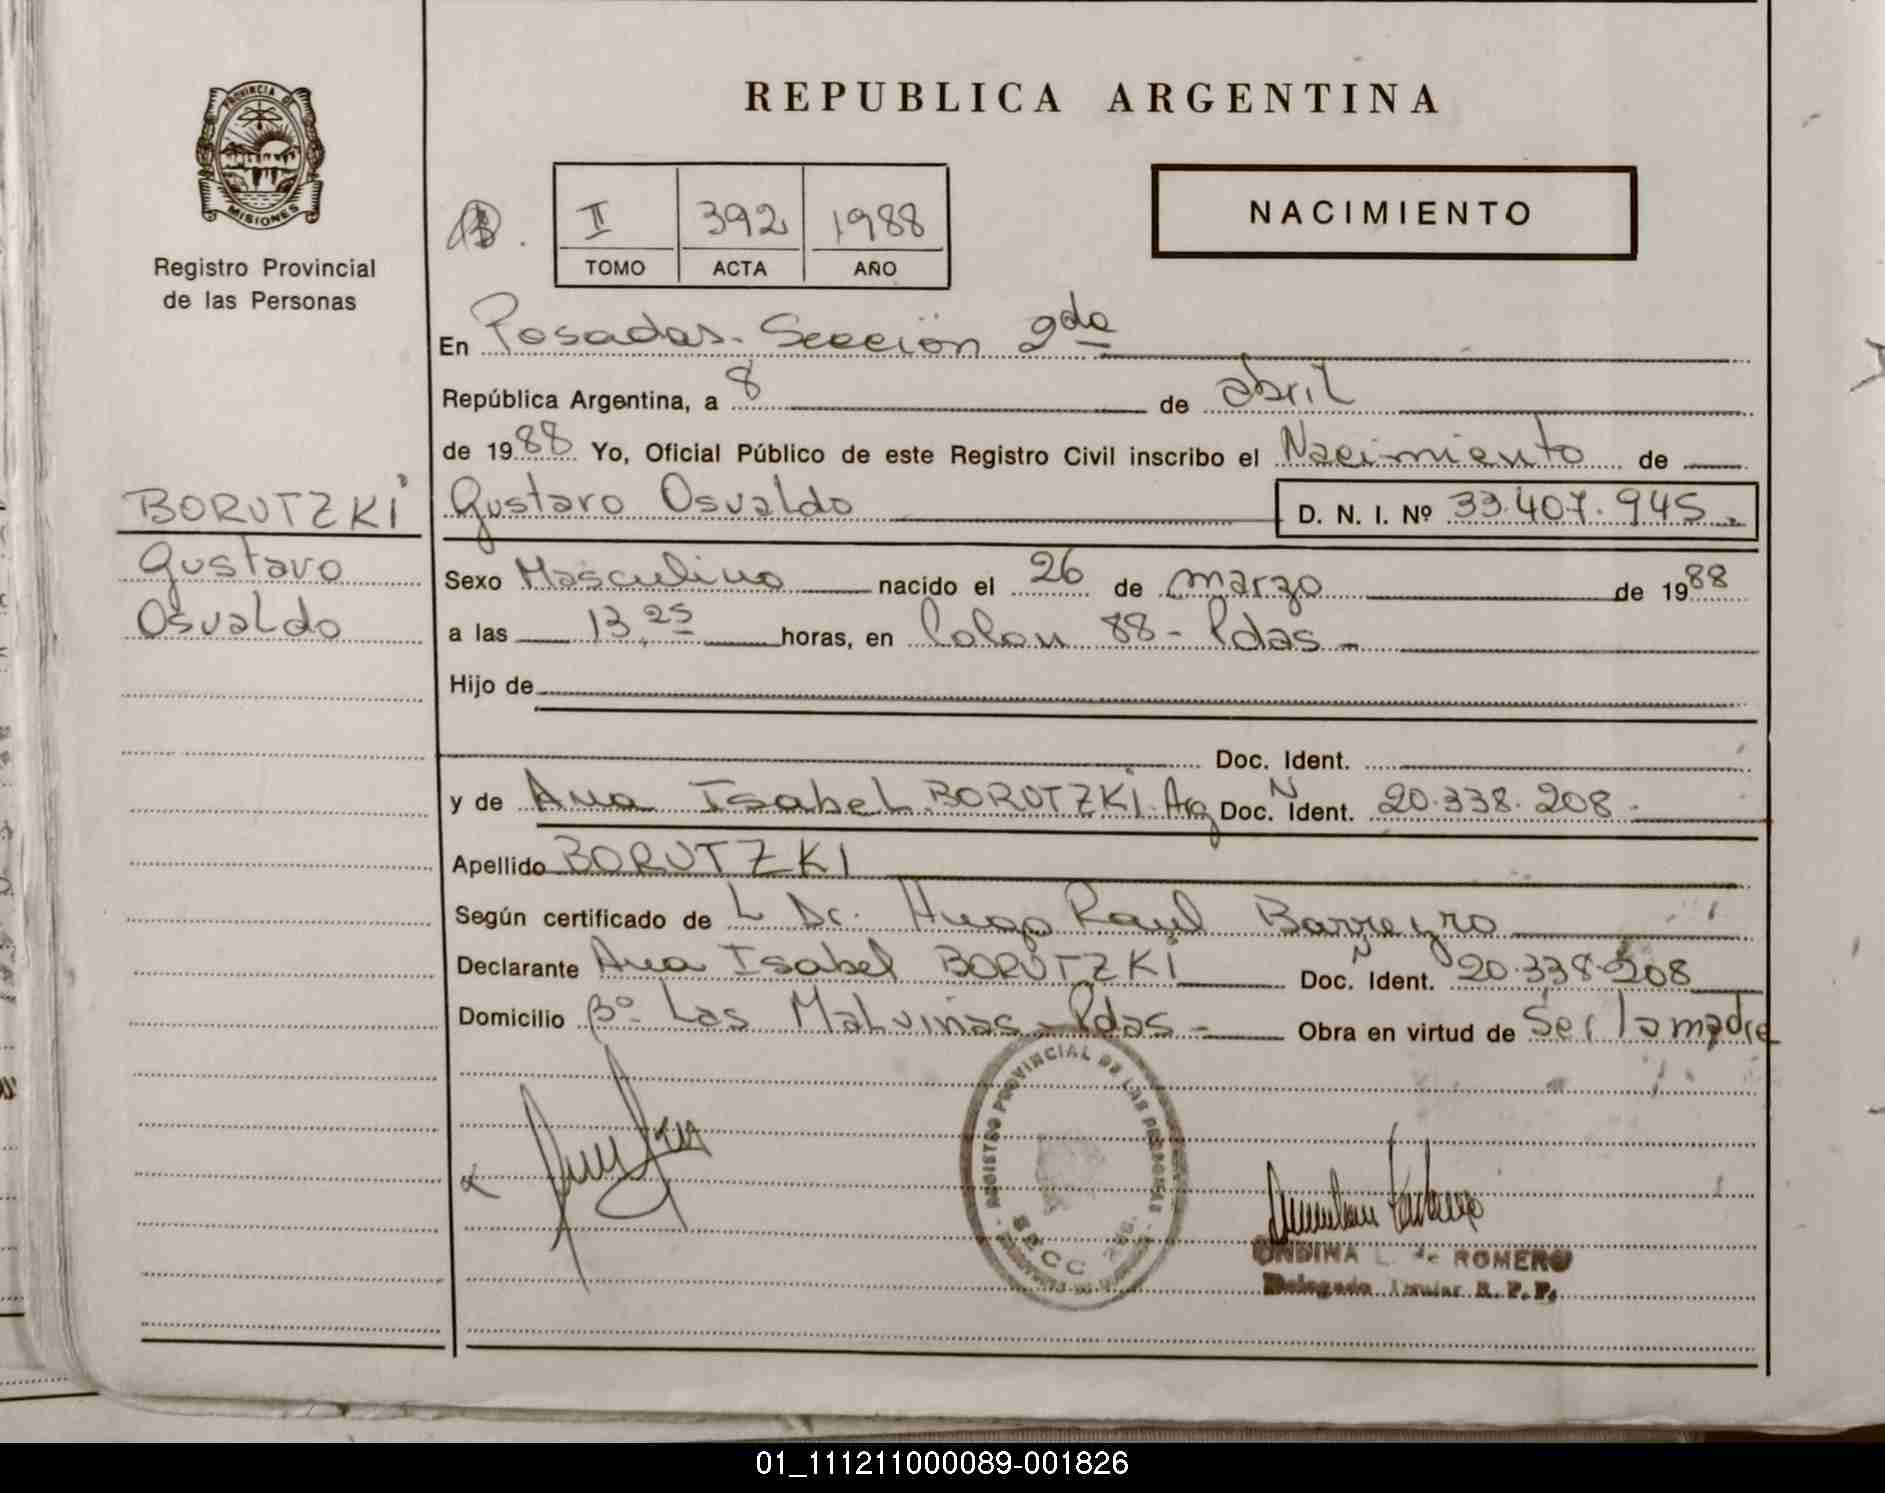 REPUBLICA ARGENTINA
PROVINCIA DE
MISIONES
Registro Provincial
de las Personas
II 392 1988
TOMO ACTA AÑO
NACIMIENTO
En Posadas. Sección 2da
República Argentina, a 8 de abril
de 1988 Yo, Oficial Público de este Registro Civil inscribo el Nacimiento de
BORUTZKI
Gustavo
Osvaldo
Gustavo Osvaldo D. N. I. Nº 33.407.945.
Sexo Masculino nacido el 26 de marzo de 1988
a las 13,25 horas, en Colon 88 - Pdas -
Hijo de
Doc. Ident.
y de Ana Isabel BORUTZKI. Arg Doc. N Ident. 20.338.208.
Apellido BORUTZKI
Según certificado de L Dr. Hugo Raul Barreyro
Declarante Ana Isabel BORUTZKI Doc. N Ident. 20.338.208
Domicilio Bº Las Malvinas - Pdas - Obra en virtud de Ser la madre
REGISTRO PROVINCIAL DE LAS PERSONAS
SECC 2da.
ONDINA L. de ROMERO
Delegada Titular R. P. P.
01_111211000089-001826